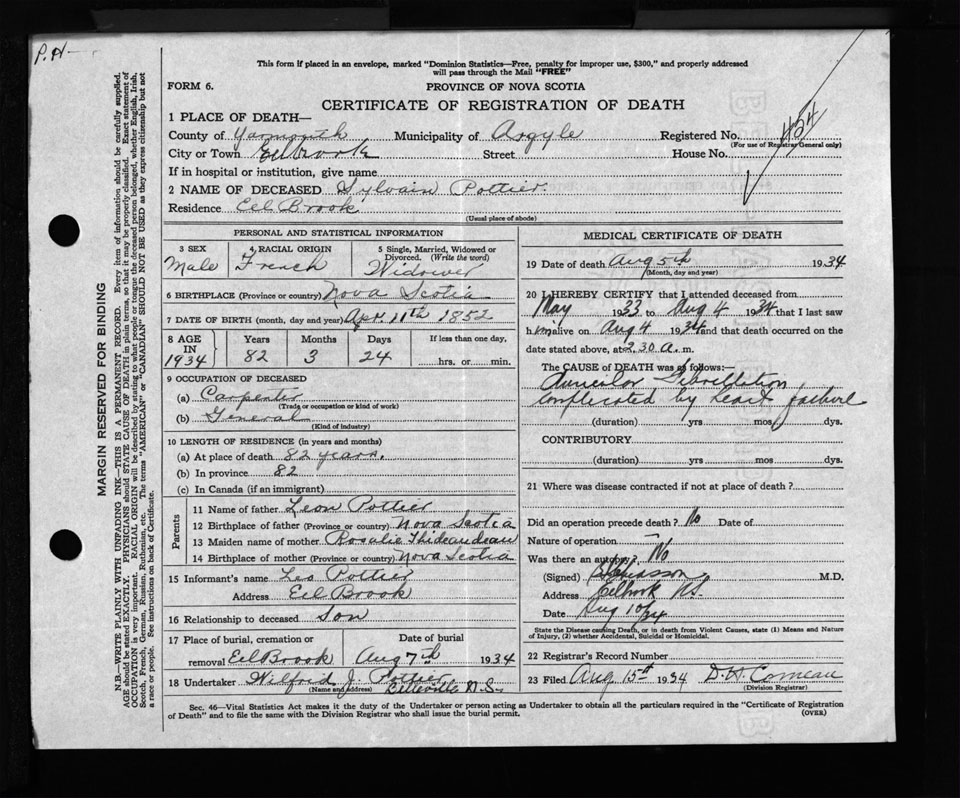 P.H.
This form if placed in an envelope, marked "Dominion Statistics—Free, penalty for improper use, $300," and properly addressed
will pass through the Mail "FREE"
FORM 6.
PROVINCE OF NOVA SCOTIA
CERTIFICATE OF REGISTRATION OF DEATH
1 PLACE OF DEATH—
County of Yarmouth Municipality of Argyle Registered No. 454
(For use of Registrar General only)
City or Town Eel Brook Street House No.
If in hospital or institution, give name
2 NAME OF DECEASED Sylvain Pottier
Residence Eel Brook
(Usual place of abode)
PERSONAL AND STATISTICAL INFORMATION
3 SEX Male
4 RACIAL ORIGIN French
5 Single, Married, Widowed or
Divorced. (Write the word)
Widower
6 BIRTHPLACE (Province or country) Nova Scotia
7 DATE OF BIRTH (month, day and year) Apr. 11th 1852
8 AGE IN 1934
Years 82
Months 3
Days 24
If less than one day,
hrs. or min.
9 OCCUPATION OF DECEASED
(a) Carpenter
(Trade or occupation or kind of work)
(b) General
(Kind of industry)
10 LENGTH OF RESIDENCE (in years and months)
(a) At place of death 82 years.
(b) In province 82
(c) In Canada (if an immigrant)
Parents
11 Name of father Leon Pottier
12 Birthplace of father (Province or country) Nova Scotia
13 Maiden name of mother Rosalie
14 Birthplace of mother (Province or country) Nova Scotia
15 Informant's name Leo Pottier
Address Eel Brook
16 Relationship to deceased Son
17 Place of burial, cremation or
removal Eel Brook
Date of burial
Aug 7th 1934
18 Undertaker Wilfrid J. Pottier
(Name and address) Belleville N.S.
MEDICAL CERTIFICATE OF DEATH
19 Date of death Aug 5th 1934
(Month, day and year)
20 I HEREBY CERTIFY that I attended deceased from
May 1933 to Aug 4 1934 that I last saw
him alive on Aug 4 1934 and that death occurred on the
date stated above, at 2.30 a. m.
The CAUSE of DEATH was as follows:—
Auricular
complicated by heart failure
(duration) yrs mos. dys.
CONTRIBUTORY
(duration) yrs mos dys.
21 Where was disease contracted if not at place of death?
Did an operation precede death? No Date of
Nature of operation
Was there an autopsy? No
(Signed) M.D.
Address Eelbrook N.S.
Date Aug 10/34
State the Disease causing Death, or in death from Violent Causes, state (1) Means and Nature
of Injury, (2) whether Accidental, Suicidal or Homicidal.
22 Registrar's Record Number
23 Filed Aug 15th 1934 D. H. Comeau
(Division Registrar)
Sec. 46—Vital Statistics Act makes it the duty of the Undertaker or person acting as Undertaker to obtain all the particulars required in the "Certificate of Registration
of Death" and to file the same with the Division Registrar who shall issue the burial permit.
(OVER)
MARGIN RESERVED FOR BINDING
N.B.—WRITE PLAINLY WITH UNFADING INK—THIS IS A PERMANENT RECORD. Every item of information should be carefully supplied.
AGE should be stated EXACTLY. PHYSICIANS should STATE CAUSE OF DEATH in plain terms, so that it may be properly classified. Exact statement of
OCCUPATION is very important. RACIAL ORIGIN will be described by stating to what people or tongue the deceased person belonged, whether English, Irish,
Scotch, French, German, Russian, Ruthenian, etc. The terms "AMERICAN" or "CANADIAN" SHOULD NOT BE USED as they express citizenship but not
a race or people. See instructions on back of Certificate.